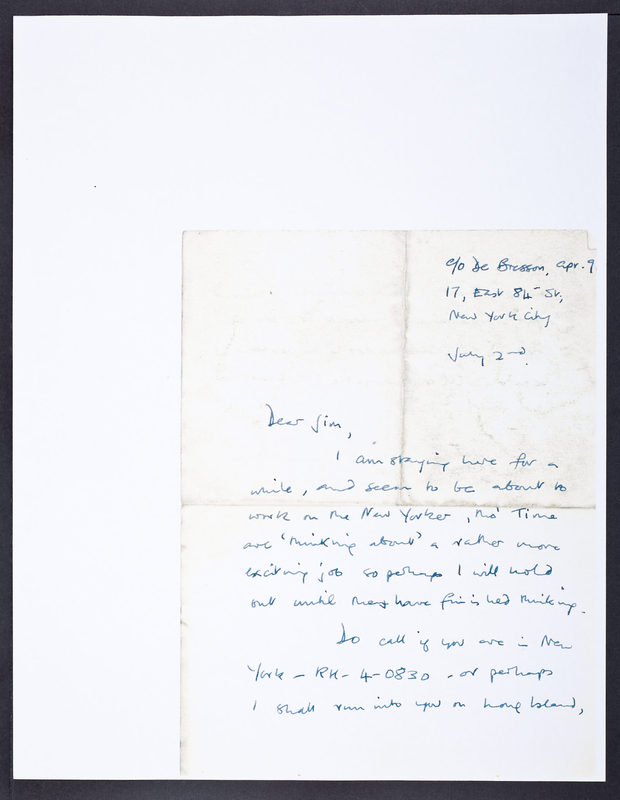 c/o De Bresson, apr. 9
17, East 84 St,
New York City
July 2nd.
Dear Jim,
I am staying here for a
while, and seem to be about to
work on the New Yorker, tho' Time
are 'thinking about' a rather more
exciting job so perhaps I will hold
out until they have finished thinking.
Do call if you are in New
York - RH-4-0830 - or perhaps
I shall run into you on Long Island,